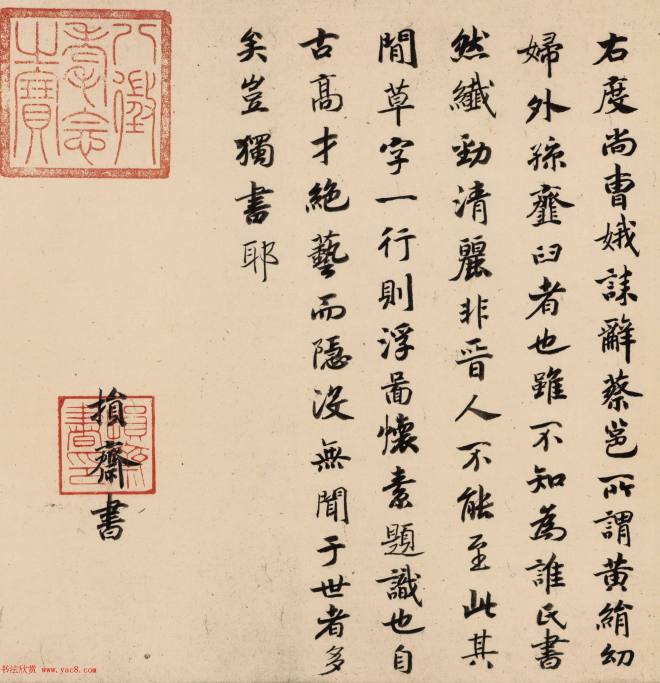 右度尚曹娥誄辭蔡邕所謂黃絹幼
婦外孫韲臼者也雖不知為誰氏書
然纖勁清麗非晉人不能至此其
閒草字一行則浮啚懷素題識也自
古高才絕藝而隱沒無聞于世者多
矣豈獨書耶
損齋書
八徵
耄念
之寶
损齋
書印
书法欣赏 www.yac8.com